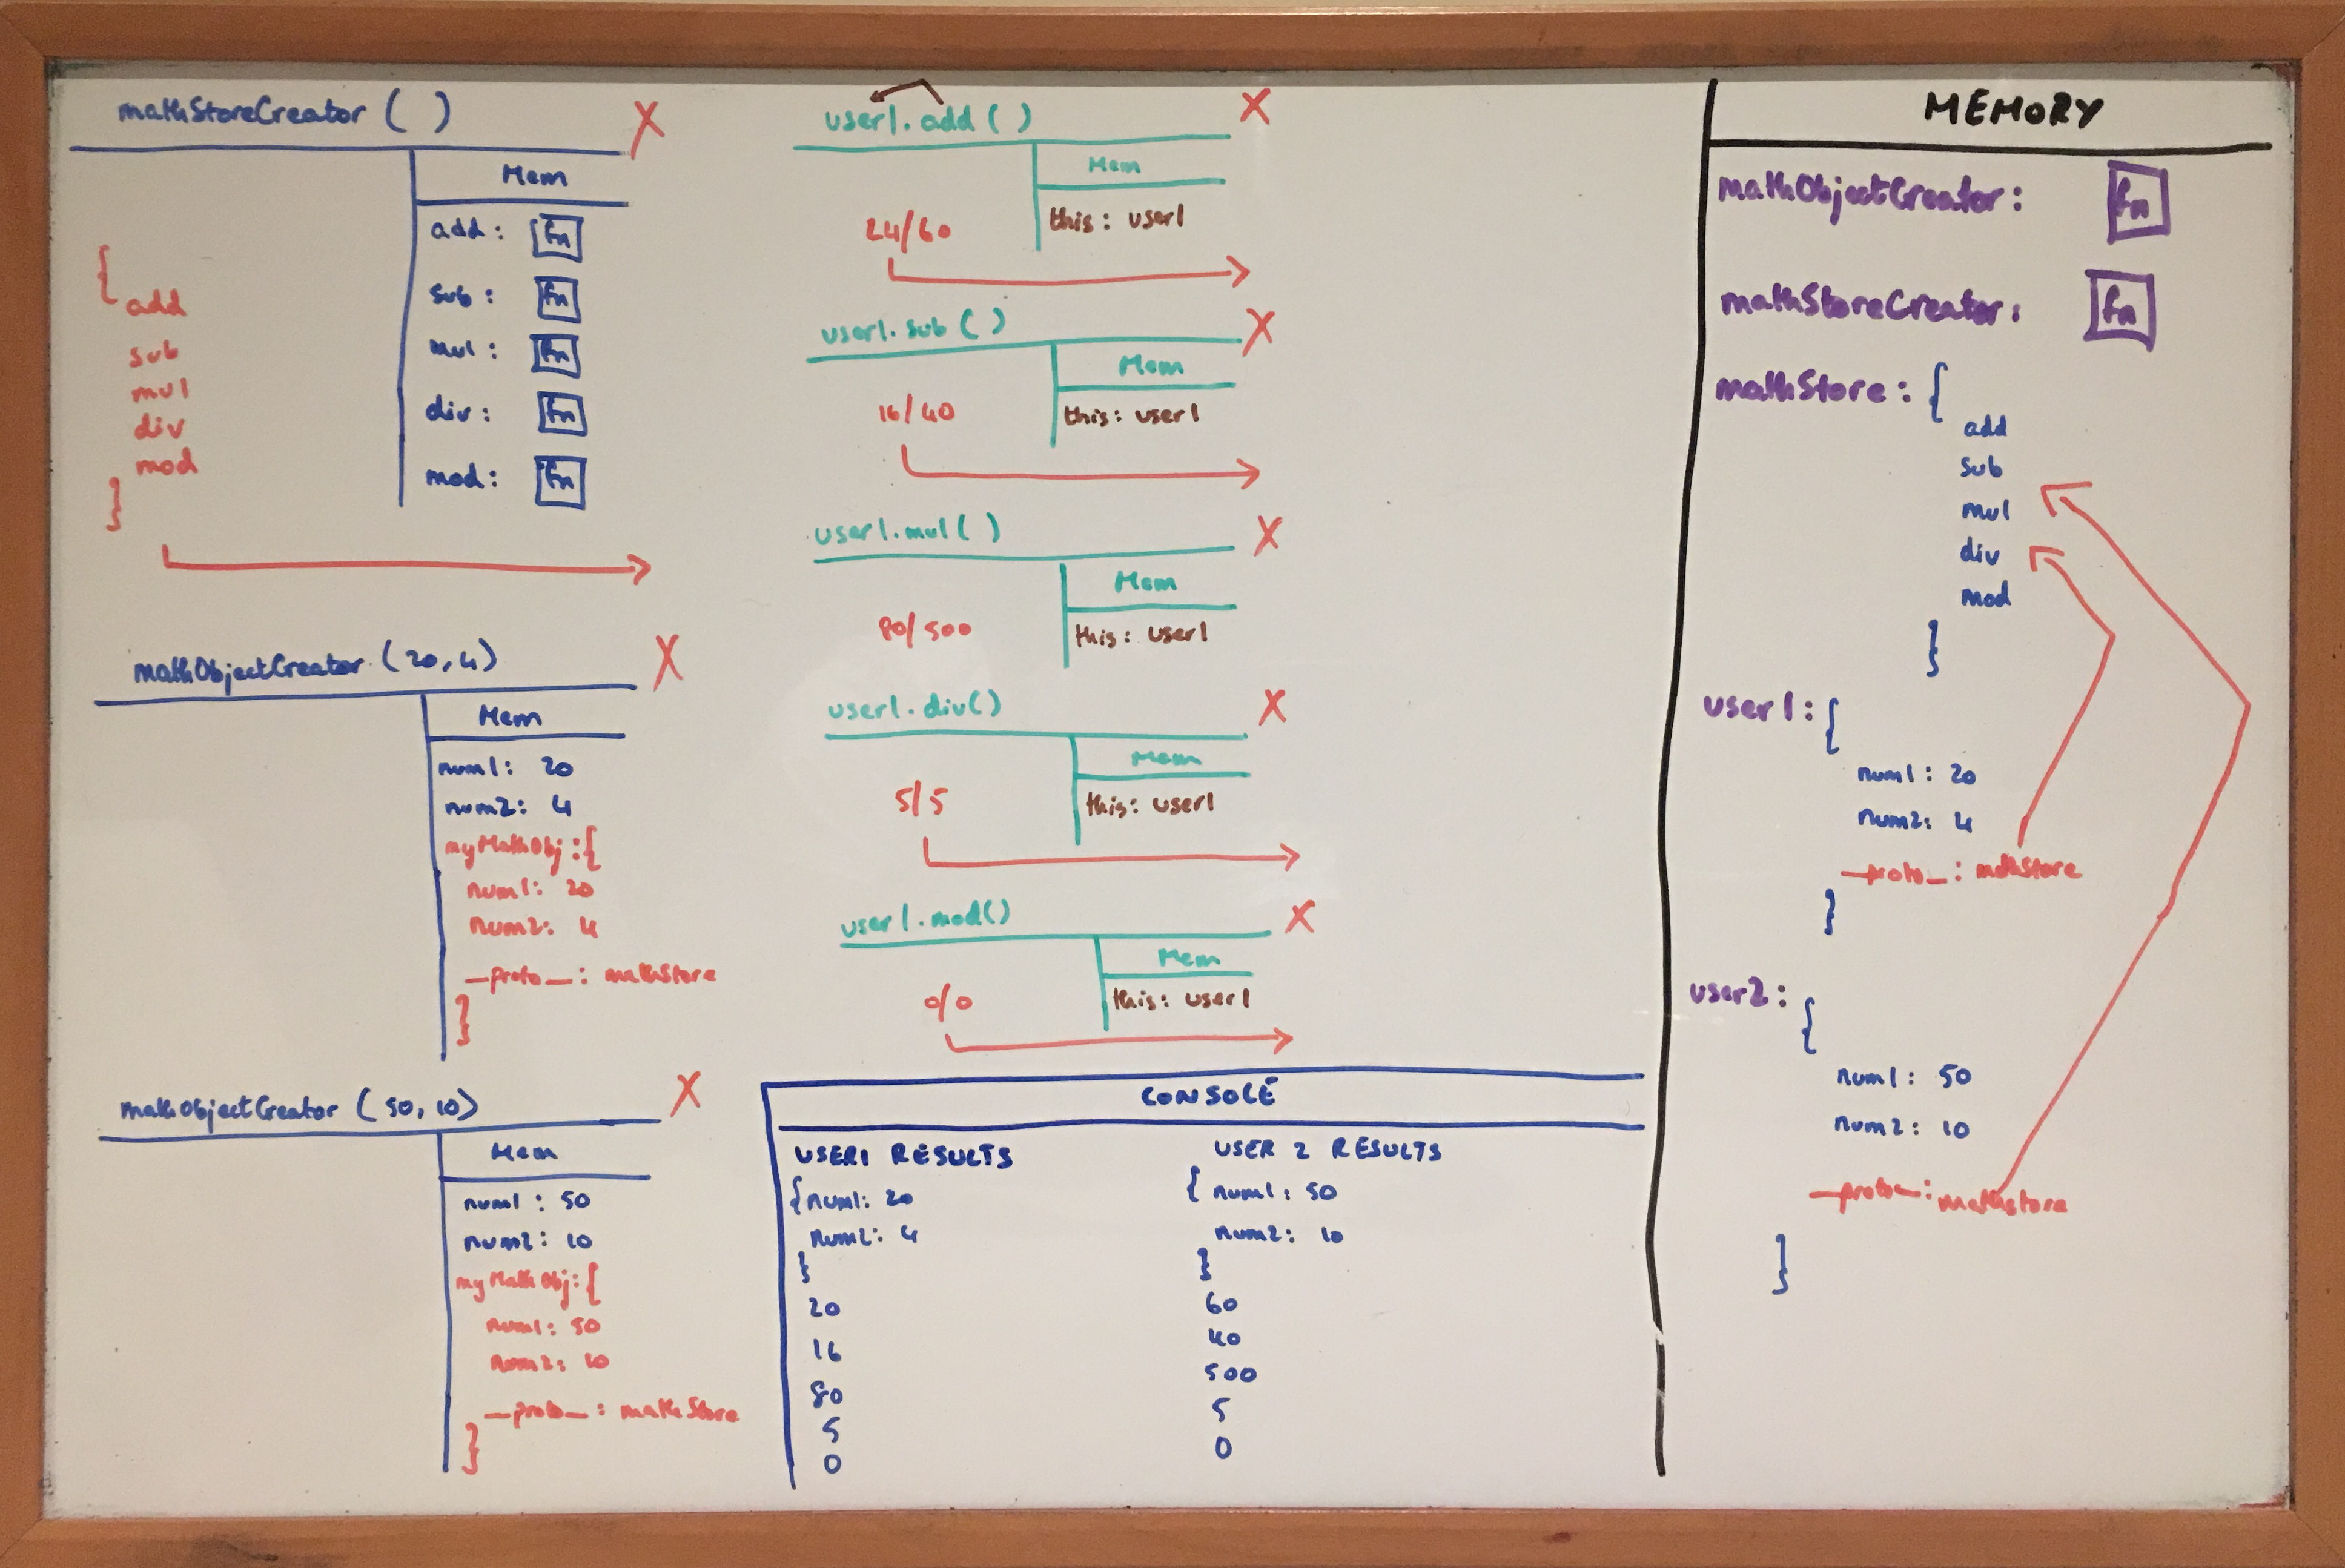 mathStoreCreator ( )
X
Mem
add : fn
sub : fn
mul : fn
div : fn
mod : fn
{
add
sub
mul
div
mod
}
mathObjectCreator (20,4)
X
Mem
num1: 20
num2: 4
myMathObj :{
num1: 20
num2: 4
__proto__: mathStore
}
mathObjectCreator (50,10)
X
Mem
num1 : 50
num2: 10
myMathObj:{
num1: 50
num2: 10
__proto__: mathStore
}
user1.add ( )
X
Mem
24/60
this: user1
user1.sub ( )
X
Mem
16/40
this: user1
user1.mul( )
X
Mem
80/500
this: user1
user1.div()
X
Mem
5/5
this: user1
user1.mod()
X
Mem
0/0
this: user1
CONSOLE
USER1 RESULTS
{num1: 20
num2: 4
}
20
16
80
5
0
USER 2 RESULTS
{ num1: 50
num2: 10
}
60
40
500
5
0
MEMORY
mathObjectCreator: fn
mathStoreCreator: fn
mathStore : {
add
sub
mul
div
mod
}
user1: {
num1: 20
num2: 4
__proto__: mathStore
}
user2:
{
num1: 50
num2: 10
__proto__: mathstore
}